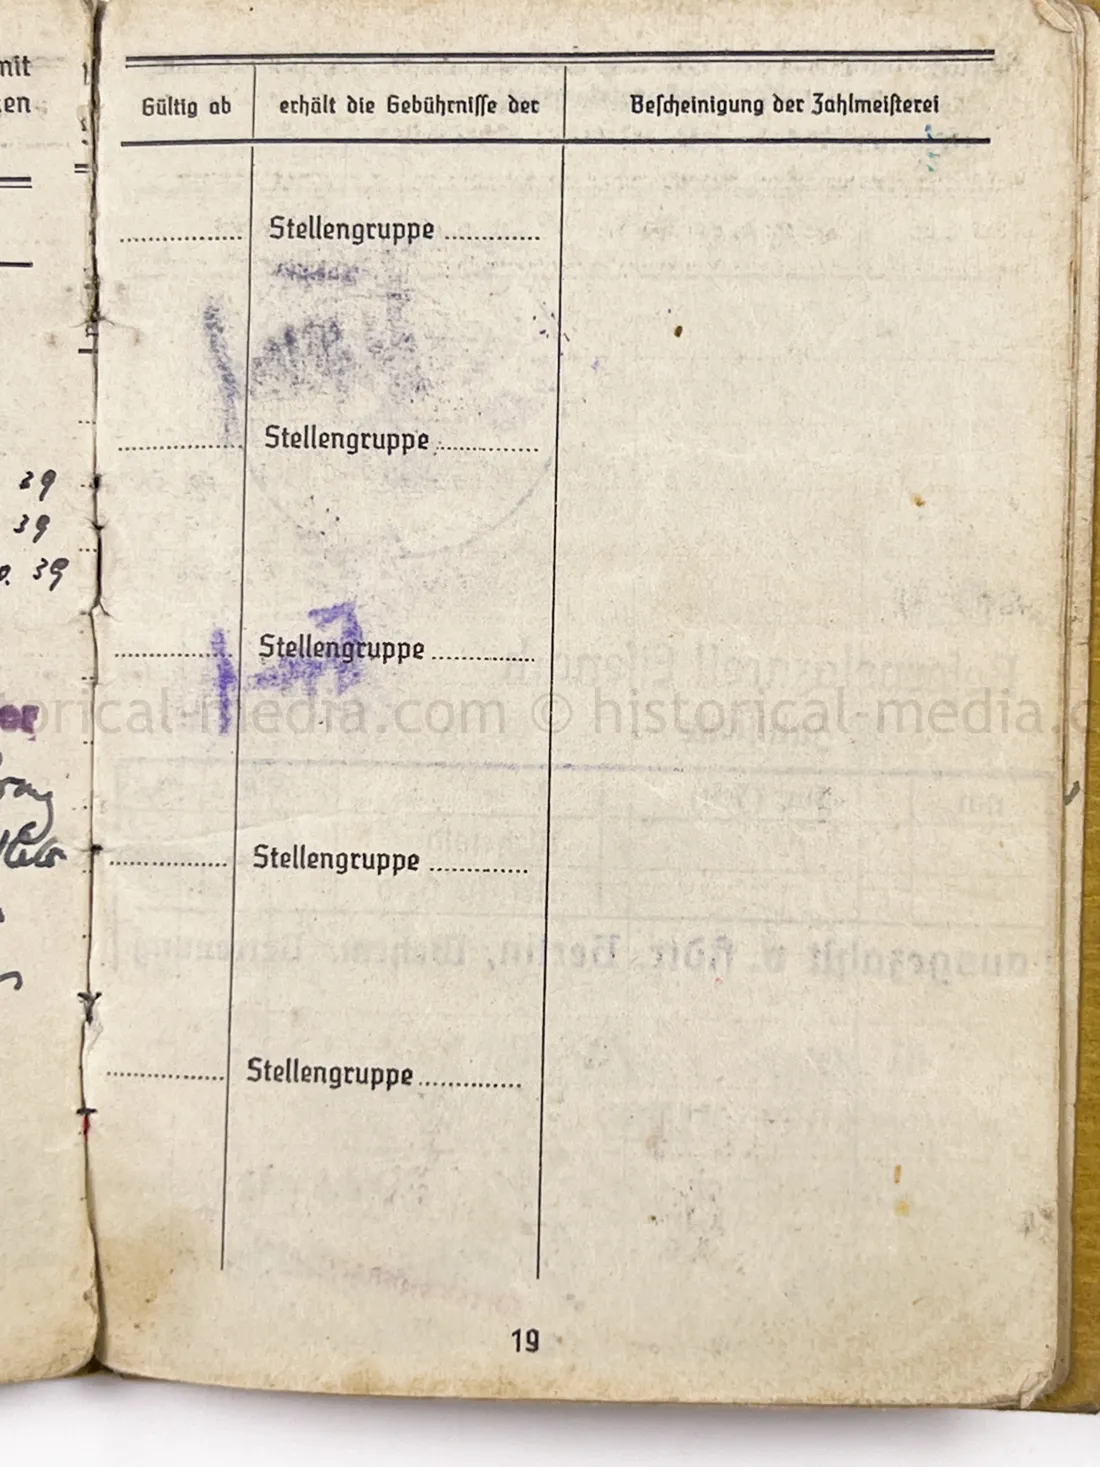 mit
en
39
39
39
er
Gültig ab erhält die Gebührnisse der Bescheinigung der Zahlmeisterei
Stellengruppe
Stellengruppe
Stellengruppe
historical-media.com © historical-media.c
Stellengruppe
ausgezahlt v. Berlin,
Stellengruppe
19